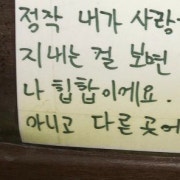 정작 내가 사랑
지내는 걸 보면
나 힙합이에요.
아니고 다른 곳에